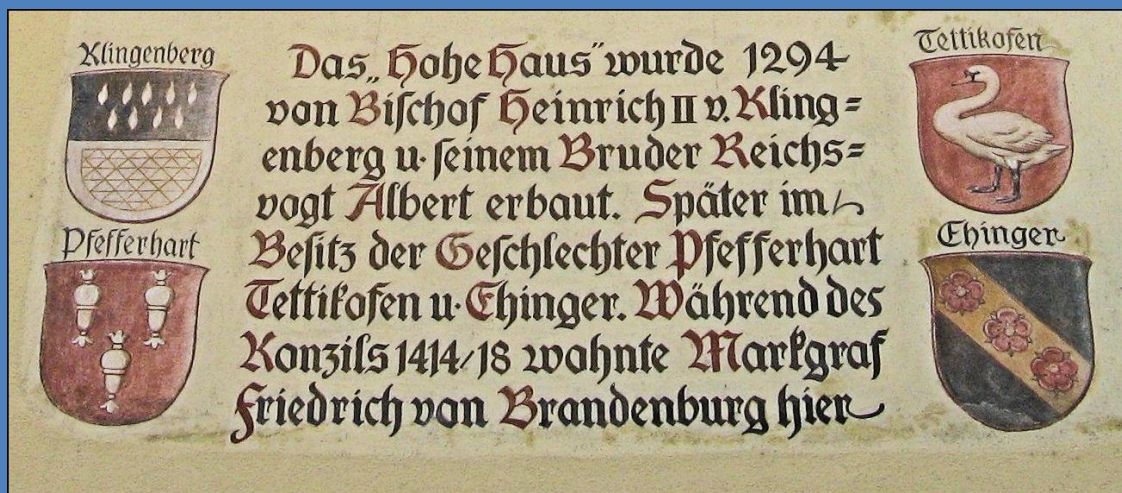 Klingenberg
Pfefferhart
Das „Hohe Haus" wurde 1294
von Bischof Heinrich II v. Kling=
enberg u. seinem Bruder Reichs=
vogt Albert erbaut. Später im
Besitz der Geschlechter Pfefferhart
Tettikofen u. Ehinger. Während des
Konzils 1414/18 wohnte Markgraf
Friedrich von Brandenburg hier
Tettikofen
Ehinger